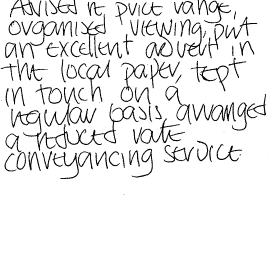 Advised re price range,
organised viewing, put
an excellent advert in
the local paper, kept
in touch on a
regular basis, arranged
a reduced rate
conveyancing service.